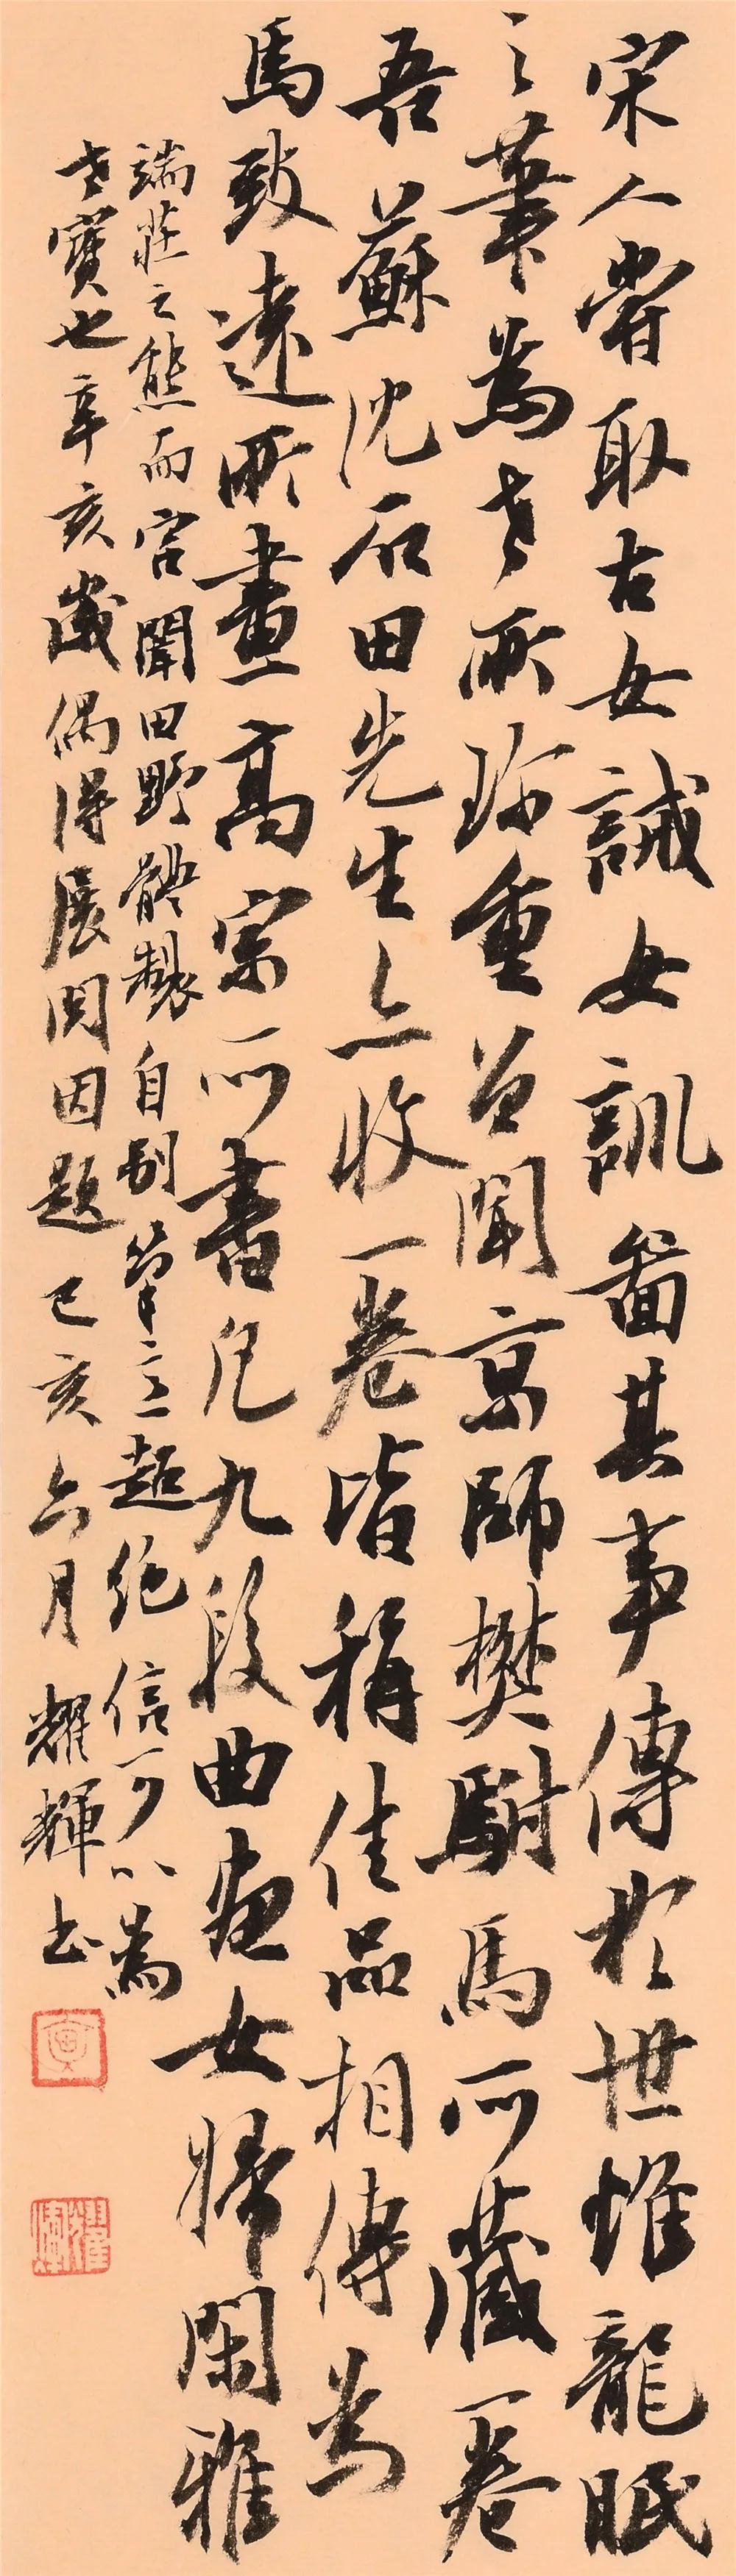 宋人嘗取古女誡女訓圖其事傳於世惟龍眠
之筆為世所珍重曾聞京師樊駙馬所藏一卷
吾蘇沈石田先生亦收一卷皆稱佳品相傳為
馬致遠所畫高宗所書凡九段曲盡女婦閑雅
端莊之態而宮闈田野體製自別筆意超絕信可以為
世寶也辛亥歲偶得展閱因題己亥六月耀輝書
耀輝